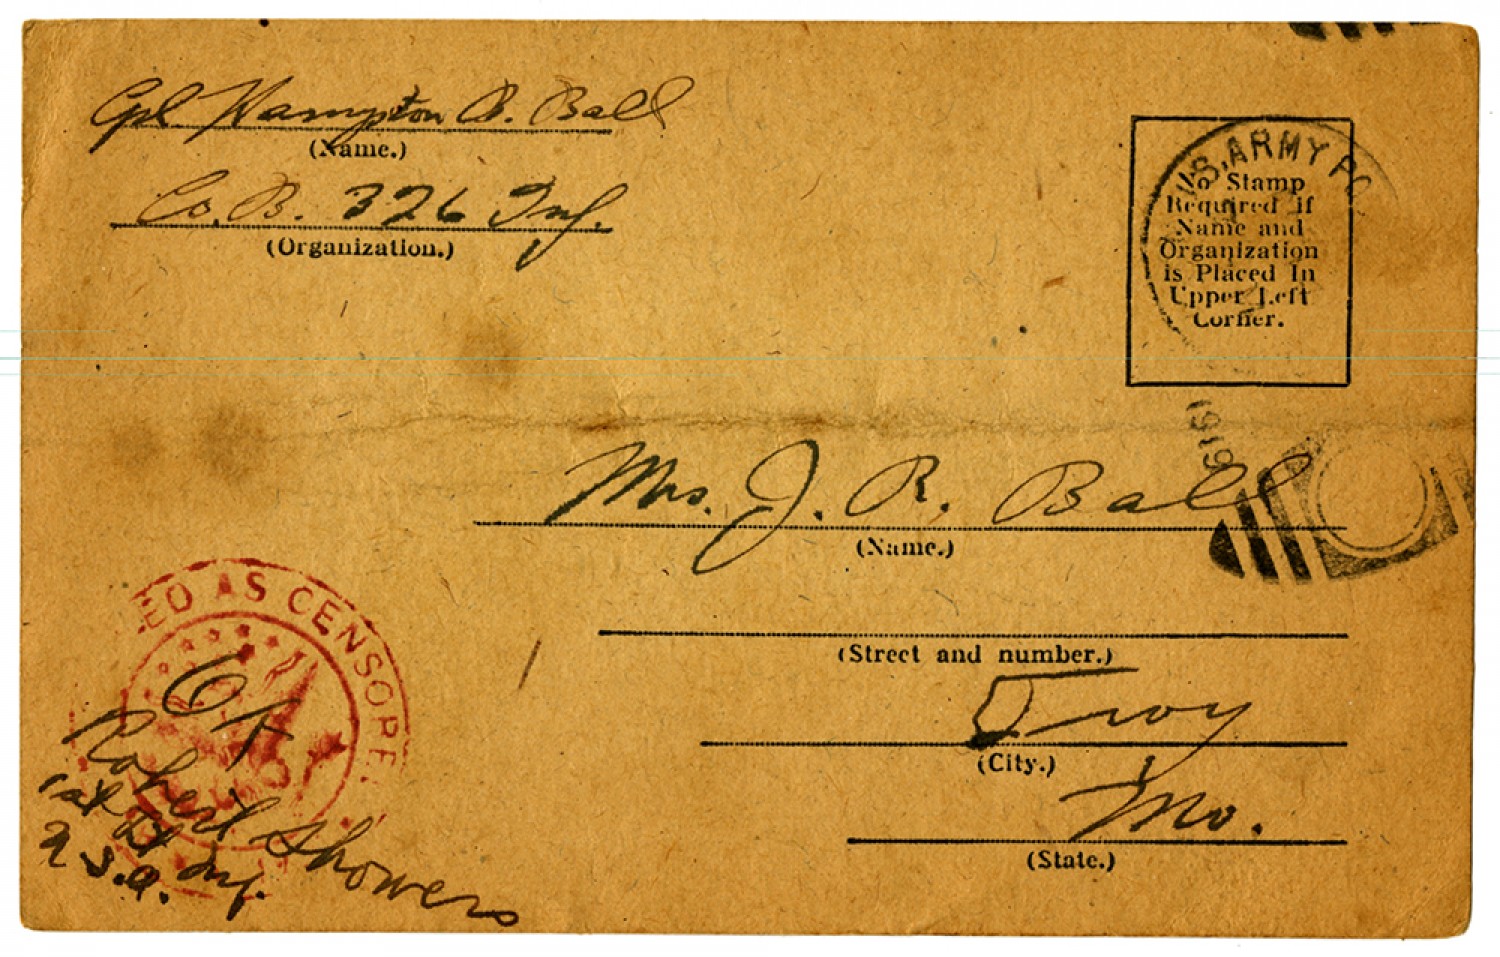 Cpl. Hampton B. Ball
(Name.)
Co. B. 326 Inf.
(Organization.)
U.S. ARMY PO
No Stamp
Required if
Name and
Organization
is Placed In
Upper Left
Corner.
1919
Mrs. J. R. Ball
(Name.)
(Street and number.)
Troy
(City.)
Mo.
(State.)
ED AS CENSORE
OK
Robert Showers
1st Lt Inf.
U.S.A.